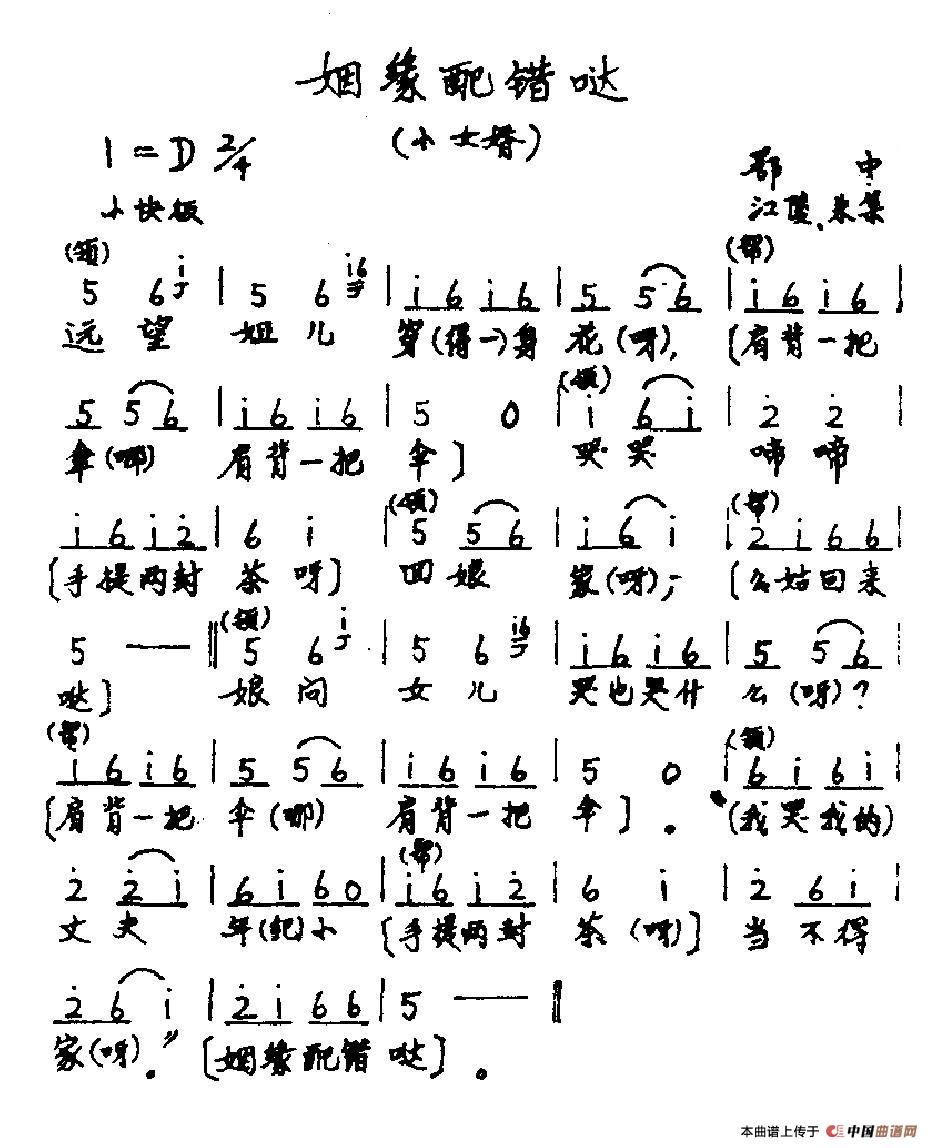 姻缘配错哒
(小女婿)
1=D 2/4
小快板
鄂 中
江陵、朱集
(领) (帮)
5 6 i | 5 6 i6 | i 6 i 6 | 5 5 6 | i 6 i 6 |
远望 妞儿 穿(得一)身 花(呀), [肩背一把
(领)
5 5 6 | i 6 i 6 | 5 0 | i 6 i | 2 2 |
伞(哪) 肩背一把 伞] 哭哭 啼啼
(领) (帮)
i 6 i 2 | 6 i | 5 5 6 | i 6 i | 2 i 6 6 |
[手提两封 茶呀] 回娘 家(呀); [么姑回来
(领)
5 — — ‖ 5 6 i | 5 6 i6 | i 6 i 6 | 5 5 6 |
哒] 娘问 女儿 哭也哭什 么(呀)?
(帮) (领)
i 6 i 6 | 5 5 6 | i 6 i 6 | 5 0 | 6 i 6 i |
[肩背一把 伞(哪) 肩背一把 伞]。 (我哭我的)
(帮)
2 2 i | 6 i 6 0 | i 6 i 2 | 6 i | 2 6 i |
丈夫 年(纪)小 [手提两封 茶(呀)] 当不得
2 6 i | 2 i 6 6 | 5 — — ‖
家(呀)。” [姻缘配错 哒]。
本曲谱上传于 中国曲谱网